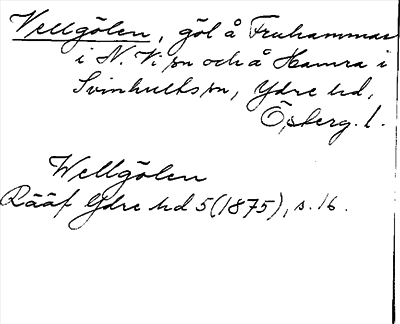 Vellgölen, göl å Fruhammar
i N. Vi sn och å Hamra i
Svinhults sn, Ydre hd,
Österg. l.
Wellgölen
Rääf Ydre hd 5 (1875), s. 16.